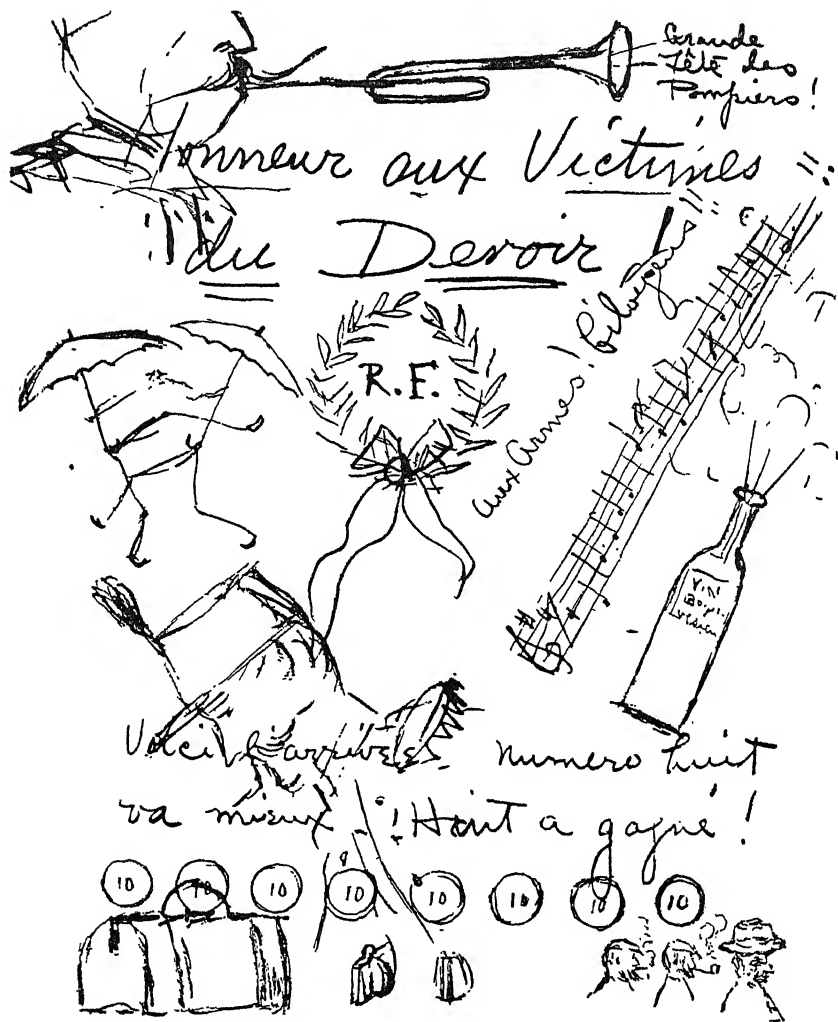 Grande
Fête des
Pompiers!
Honneur aux Victimes
du Devoir !
R.F.
aux armes! Citoyens
VIN
Voici l'arrivée numero huit
va mieux ! Huit a gagné !
10 10 10 10 10 10 10 10